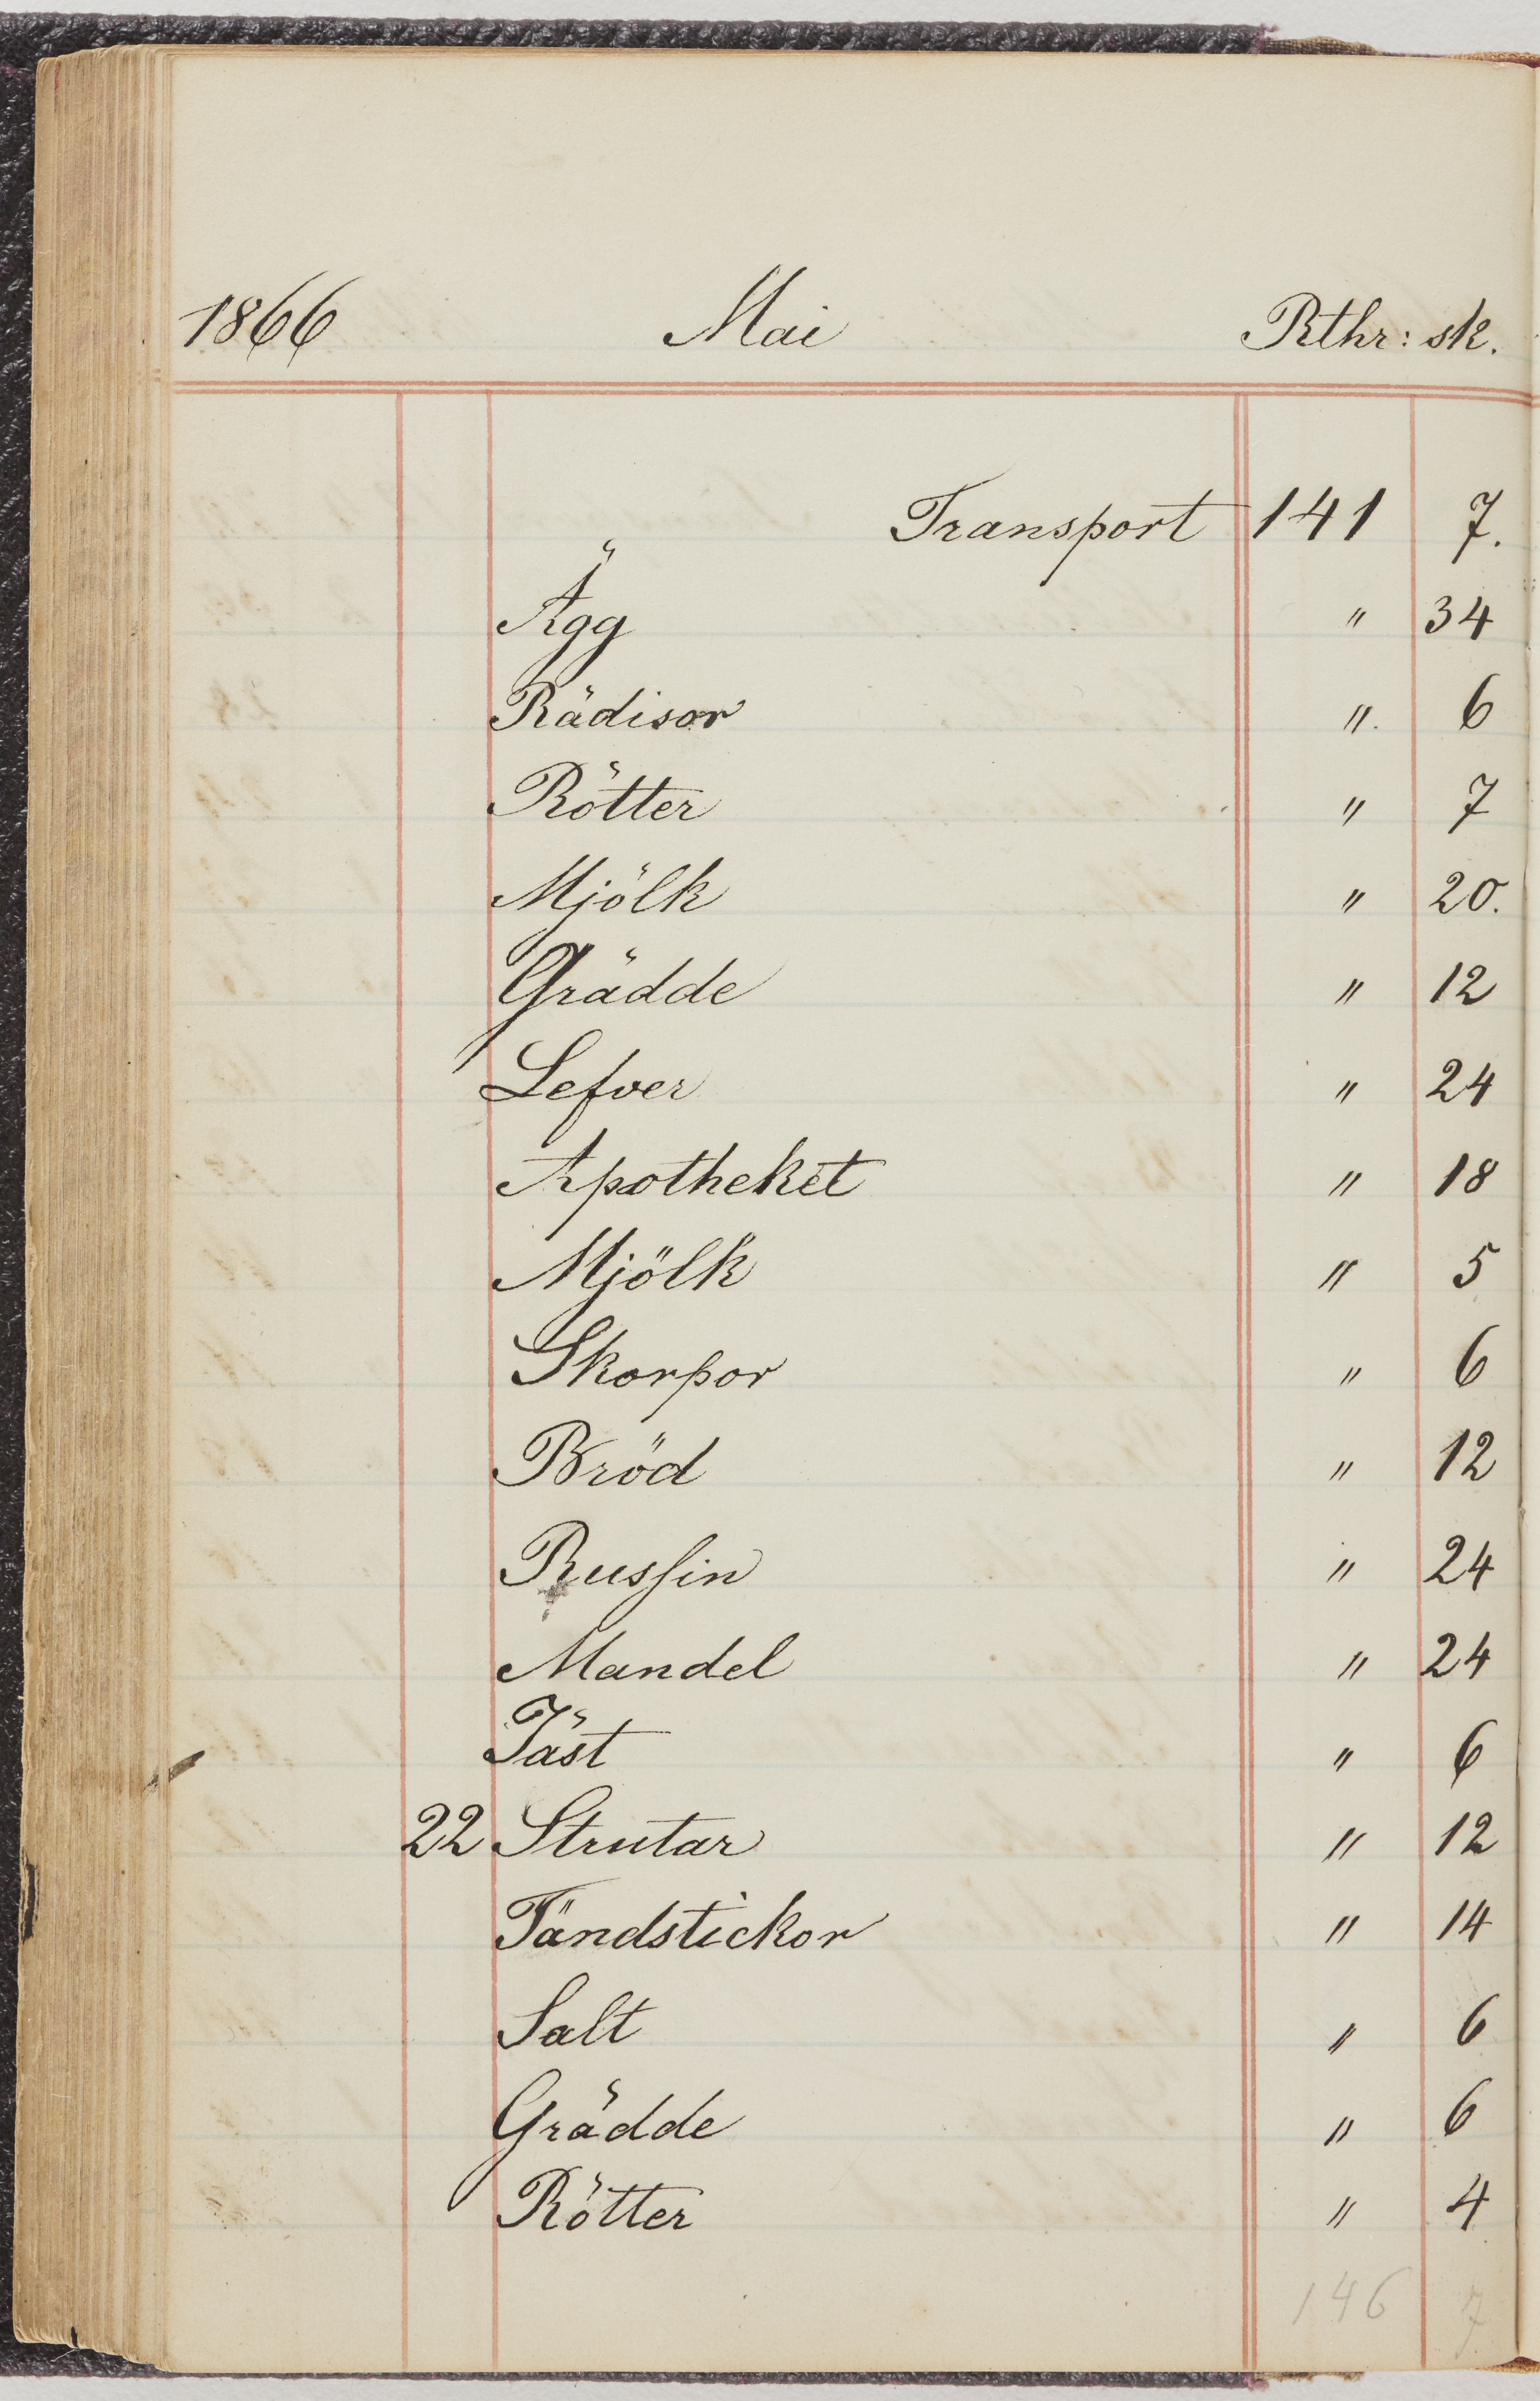 1866 Mai Rthr: sk.
Transport 141 7.
Ägg " 34
Rädisor " 6
Rötter " 7
Mjölk " 20.
Grädde " 12
Lefver " 24
Apotheket " 18
Mjölk " 5
Skorpor " 6
Bröd " 12
Russin " 24
Mandel " 24
Jäst " 6
22 Strutar " 12
Tändstickor " 14
Salt " 6
Grädde " 6
Rötter " 4
146 7.